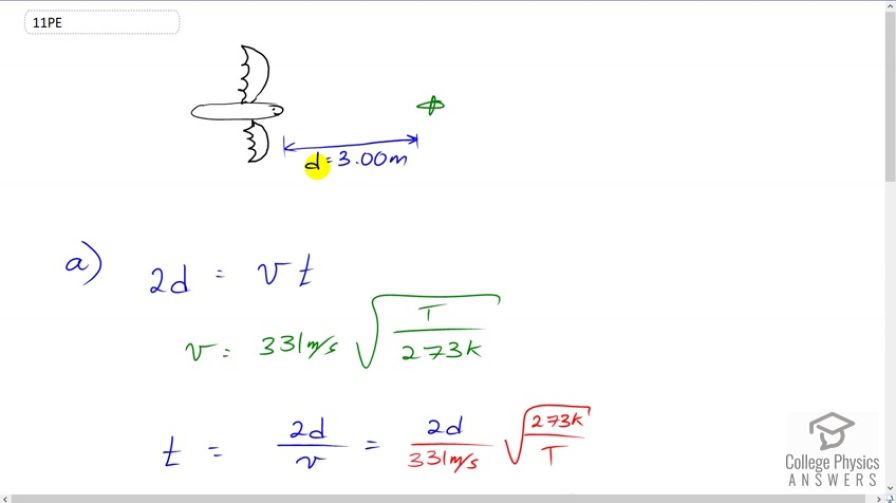 11PE
d = 3.00m
a) 2d = vt
v = 331m/s √(T/273K)
t = 2d/v = 2d/331m/s √(273K/T)
College Physics
ANSWERS